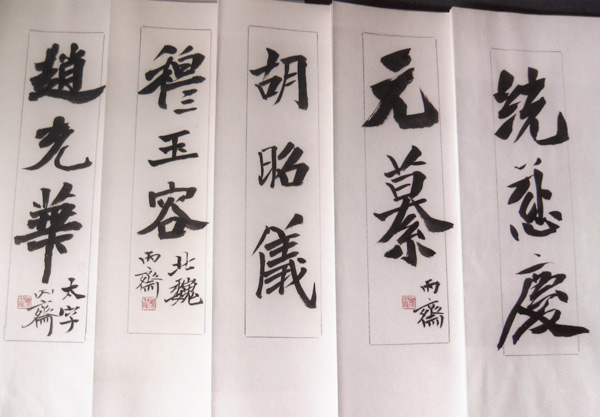 統慈慶
元纂
丙齋
胡昭儀
穆玉容
北魏
丙齋
趙充華
太字
丙齋